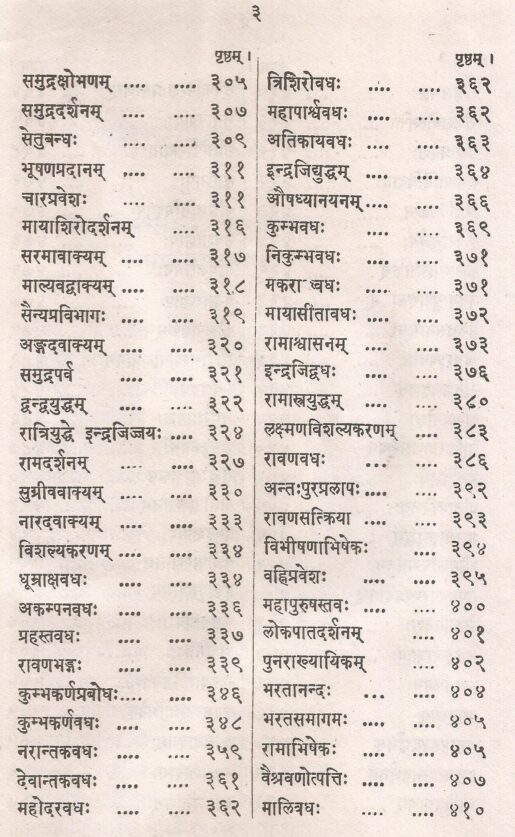 ३
पृष्ठम् ।
समुद्रक्षोभणम् .... .... ३०५
समुद्रदर्शनम् .... .... ३०७
सेतुबन्धः .... .... ३०९
भूषणप्रदानम् .... .... ३११
चारप्रवेशः .... .... ३११
मायाशिरोदर्शनम् .... ३१६
सरमावाक्यम् .... .... ३१७
माल्यवद्वाक्यम् .... .... ३१८
सैन्यप्रविभागः .... .... ३१९
अङ्गदवाक्यम् .... .... ३२०
समुद्रपर्व .... .... ३२१
द्वन्द्वयुद्धम् .... .... ३२२
रात्रियुद्धे इन्द्रजिज्जयः .... ३२४
रामदर्शनम् .... .... ३२७
सुग्रीववाक्यम् .... .... ३३०
नारदवाक्यम् .... .... ३३३
विशल्यकरणम् .... .... ३३४
धूम्राक्षवधः .... .... ३३४
अकम्पनवधः .... .... ३३६
प्रहस्तवधः .... .... ३३७
रावणभङ्गः .... .... ३३९
कुम्भकर्णप्रबोधः .... .... ३४६
कुम्भकर्णवधः .... .... ३४८
नरान्तकवधः .... .... ३५९
देवान्तकवधः .... .... ३६१
महोदरवधः .... .... ३६२
पृष्ठम् ।
त्रिशिरोवधः .... .... ३६२
महापार्श्ववधः .... .... ३६२
अतिकायवधः .... .... ३६३
इन्द्रजिद्युद्धम् .... .... ३६४
औषध्यानयनम् .... .... ३६६
कुम्भवधः .... .... ३६९
निकुम्भवधः .... .... ३७१
वधः .... .... ३७१
मायासीतावधः .... .... ३७२
रामाश्वासनम् .... .... ३७३
इन्द्रजिद्वधः .... .... ३७६
रामास्त्रयुद्धम् .... .... ३८०
लक्ष्मणविशल्यकरणम् .... ३८३
रावणवधः ... .... ३८६
अन्तःपुरप्रलापः .... .... ३९२
रावणसत्क्रिया .... .... ३९३
विभीषणाभिषेकः .... ३९४
वह्निप्रवेशः .... .... ३९५
महापुरुषस्तवः .... .... ४००
लोकपातदर्शनम् .... ४०१
पुनराख्यायिकम् .... ४०२
भरतानन्दः ... .... ४०४
भरतसमागमः .... .... ४०५
रामाभिषेकः .... .... ४०५
वैश्रवणोत्पत्तिः .... .... ४०७
मालिवधः .... .... ४१०